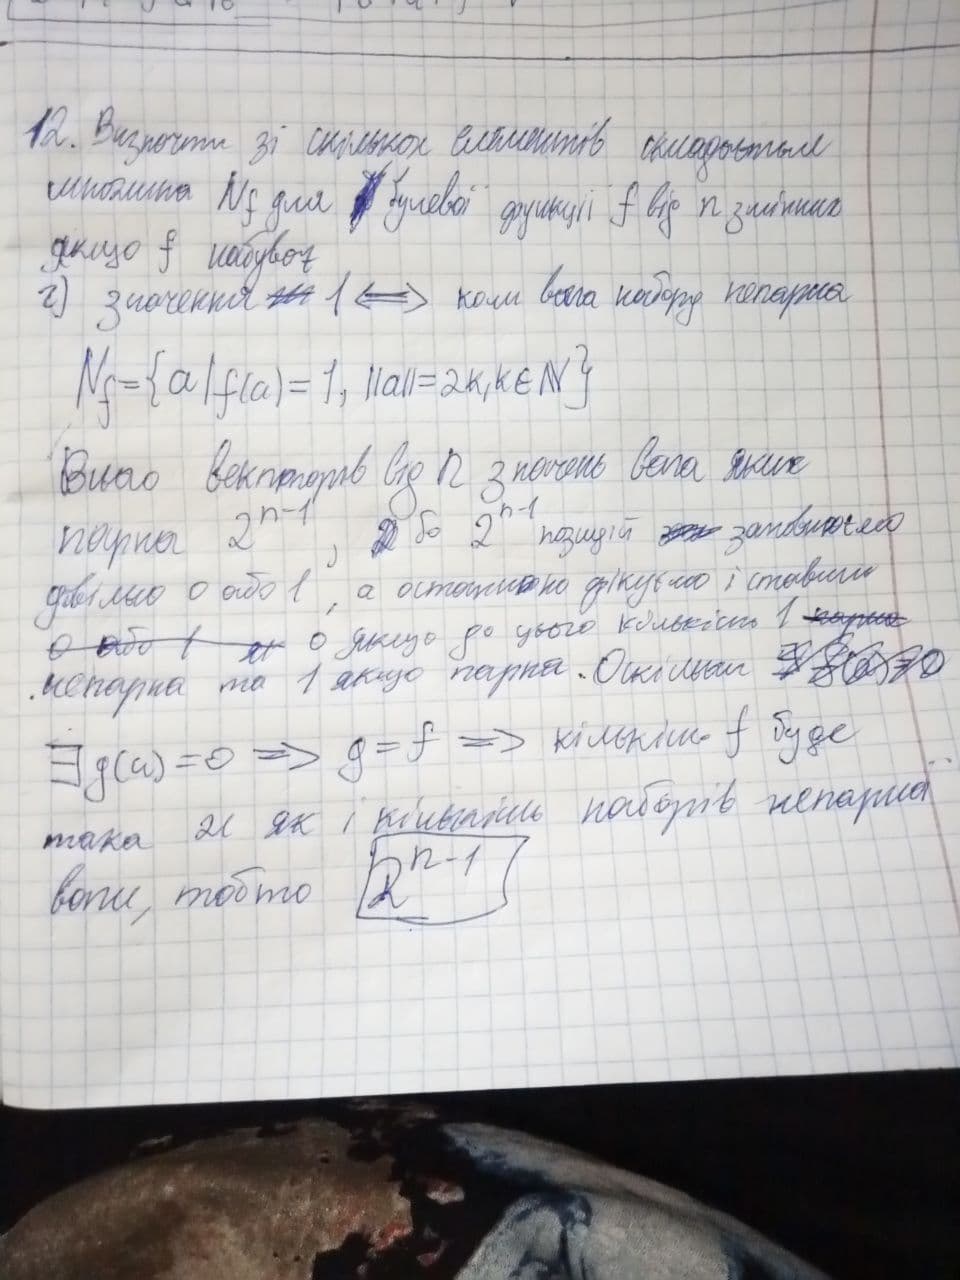 12. Визначити зі скількох елементів складається
множина N_f для булевої функції f від n змінних
якщо f набуває
г) значення 1 <=> коли вага набору непарна
N_f = {a | f(a) = 1, ||a|| = 2k, k ∈ N}
Всього векторів від n значень вага яких
парна 2^{n-1}, бо 2^{n-1} позицій заповнюємо
довільно 0 або 1, а останню фікуємо і ставимо
0 якщо до цього кількість 1
непарна та 1 якщо парна. Оскільки
∃ g(a) = 0 => g = f => кількість f буде
така ж як і кількість наборів непарної
ваги, тобто 2^{n-1}